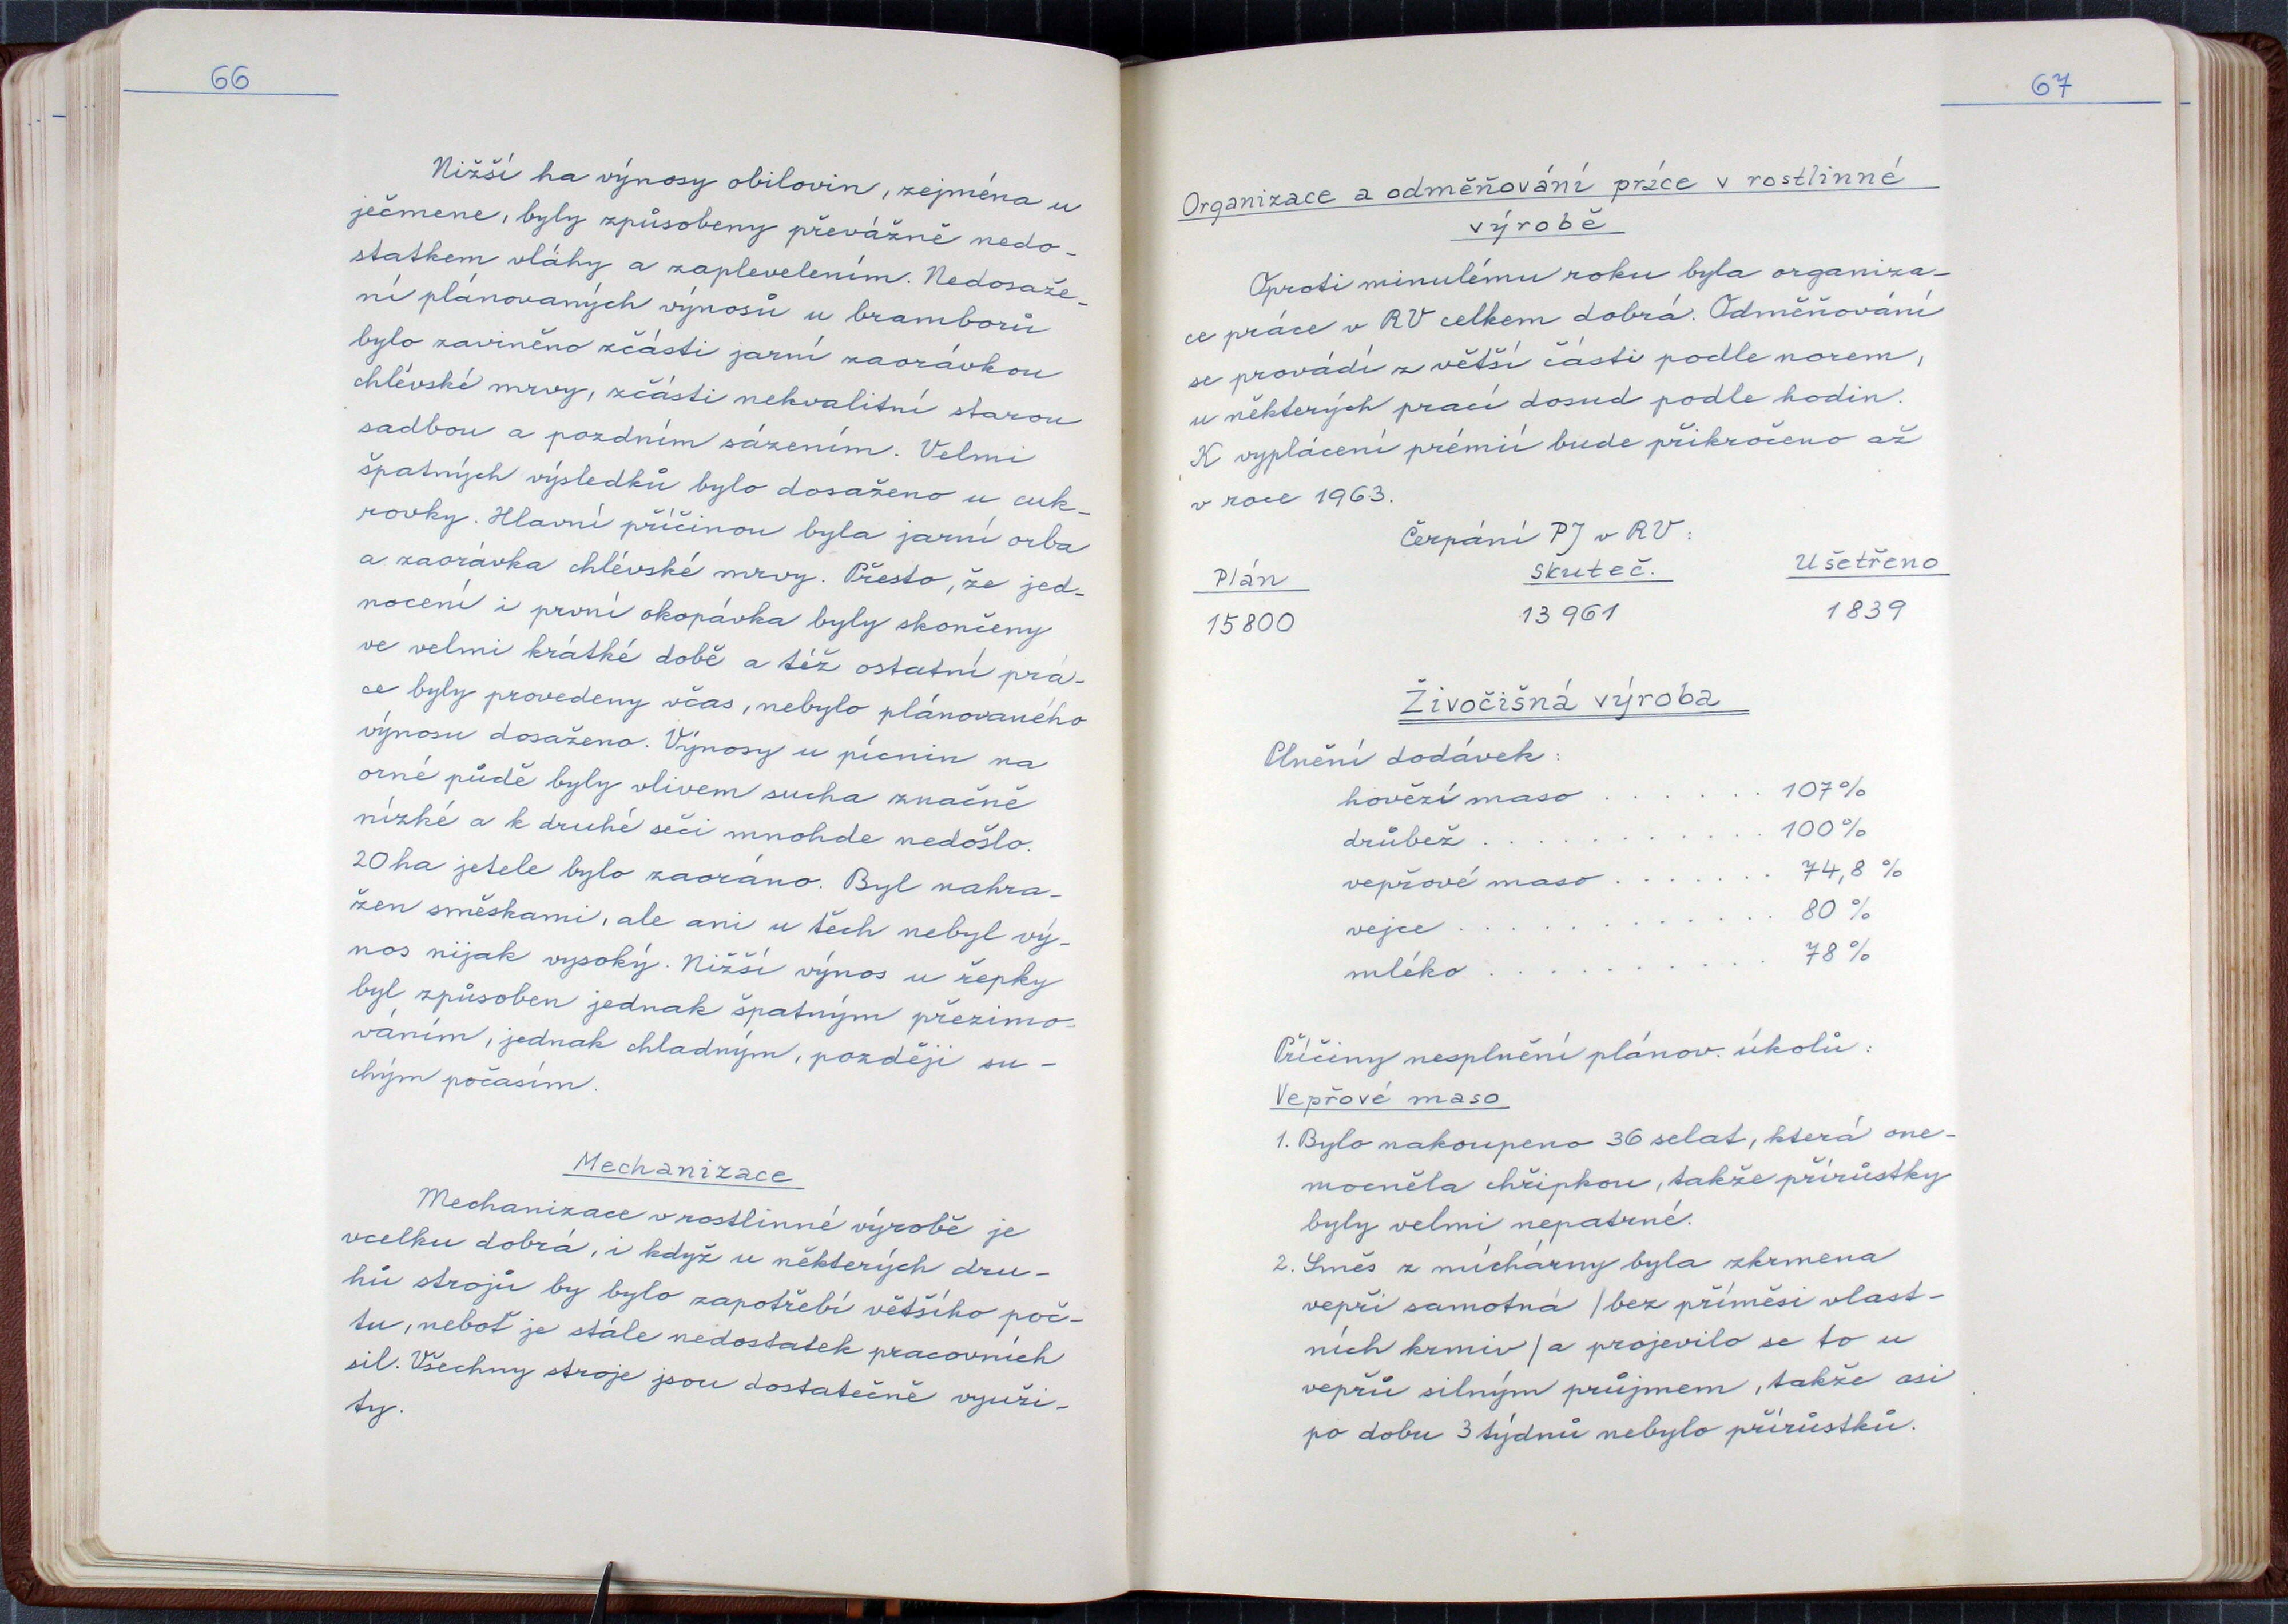 66
Nižší ha výnosy obilovin, zejména u
ječmene, byly způsobeny převážně nedo-
statkem vláhy a zaplevelením. Nedosaže-
ní plánovaných výnosů u bramborů
bylo zaviněno zčásti jarní zaorávkou
chlévské mrvy, zčásti nekvalitní starou
sadbou a pozdním sázením. Velmi
špatných výsledků bylo dosaženo u cuk-
rovky. Hlavní příčinou byla jarní orba
a zaorávka chlévské mrvy. Přesto, že jed-
nocení i první okopávka byly skončeny
ve velmi krátké době a též ostatní prá-
ce byly provedeny včas, nebylo plánovaného
výnosu dosaženo. Výnosy u pícnin na
orné půdě byly vlivem sucha značně
nízké a k druhé seči mnohde nedošlo.
20 ha jetele bylo zaoráno. Byl nahra-
žen směskami, ale ani u těch nebyl vý-
nos nijak vysoký. Nižší výnos u řepky
byl způsoben jednak špatným přezimo-
váním, jednak chladným, později su-
chým počasím.
Mechanizace
Mechanizace v rostlinné výrobě je
vcelku dobrá, i když u některých dru-
hů strojů by bylo zapotřebí většího poč-
tu, neboť je stále nedostatek pracovních
sil. Všechny stroje jsou dostatečně využi-
ty.
67
Organizace a odměňování práce v rostlinné
výrobě
Oproti minulému roku byla organiza-
ce práce v RV celkem dobrá. Odměňování
se provádí z větší části podle norem,
u některých prací dosud podle hodin.
K vyplácení prémií bude přikročeno až
v roce 1963.
Čerpání PJ v RV:
Plán Skuteč. Ušetřeno
15800 13 961 1839
Živočišná výroba
Plnění dodávek:
hovězí maso . . . . . . 107%
drůbež . . . . . . . . . . . 100%
vepřové maso . . . . . . . 74,8 %
vejce . . . . . . . . . . . . 80 %
mléko . . . . . . . . . . . 78 %
Příčiny nesplnění plánov. úkolů:
Vepřové maso
1. Bylo nakoupeno 36 selat, která one-
mocněla chřipkou, takže přírůstky
byly velmi nepatrné.
2. Směs z míchárny byla zkrmena
vepři samotná /bez příměsi vlast-
ních krmiv/ a projevilo se to u
vepřů silným průjmem, takže asi
po dobu 3 týdnů nebylo přírůstků.